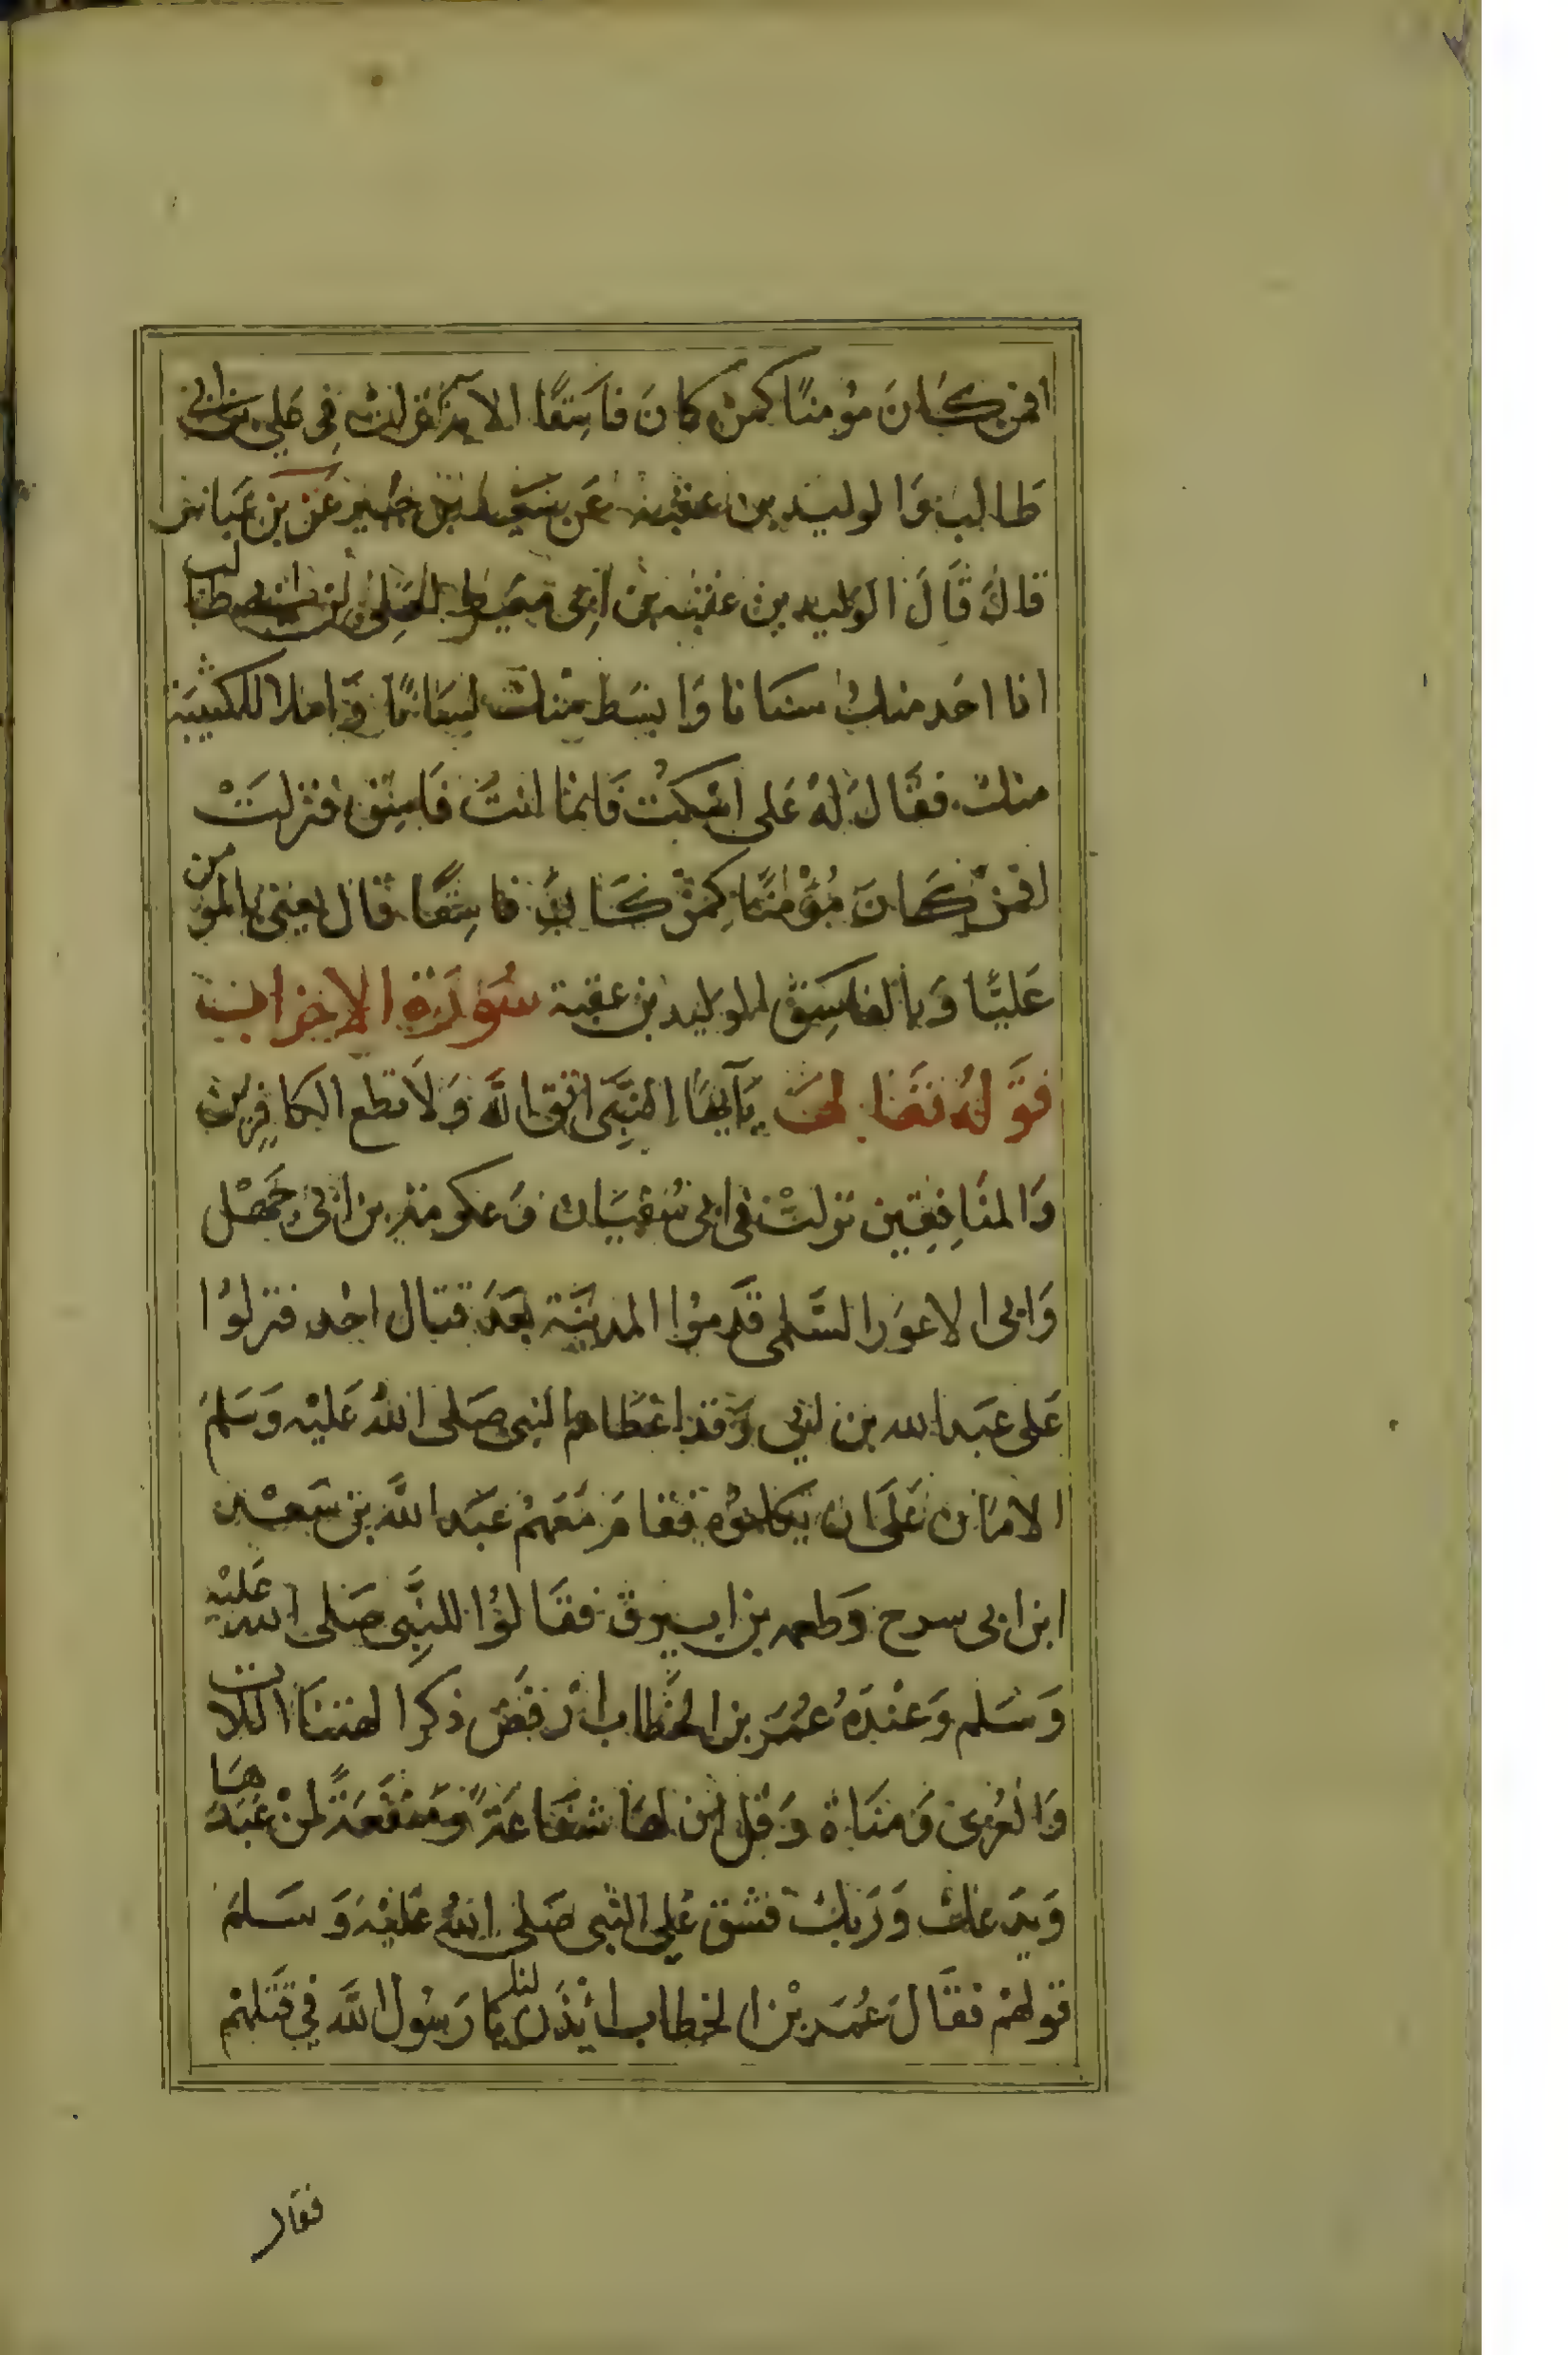 افمن كَانَ مؤمنًا كمن كانَ فاسِقًا الاية نزلت فِى علي بن ابى
طالب وَالوليد بن عقبة عَن سَعيد بن جُبير عَن بن عَباس
قال قَالَ الوليد بن عقبه بن أبِى معيط لعَلى بن ابى طالب
انا احَد منك سنانا وَابسَط منك لسَانًا وَاملا للكتيبَة
منك فقَال لهُ عَلى اسْكُت فَانما انتَ فَاسِق فنزلَتْ
افمنْ كَانَ مُؤْمنًا كمَنْ كَانَ فاسِقًا قال يعنى بالمومن
عَليًّا وَبالفَاسِق الوليد بن عقبة سُورَة الاحزاب
قَولهُ تعَالى يَآيهَا النبِىّ اتق الله وَلَا تطع الكافِرين
وَالمنَافِقِين نزلتْ فى ابى سُفيَان وَعكرمة بن ابى جَهْل
وَابى الاعوَر السَّلمى قَدموُا المدينَة بعَدَ قتال احُد فنزلوُا
عَلى عبَد الله بن ابي وَقد اعْطَاهم النبى صَلى اللهُ عَليْه وَسَلمَ
الامَان عَلَى ان يكلموُه فقامَ مَعَهُمْ عبَد اللَّه بن سَعْد
ابن ابى سرح وَطعمه بن ابيرق فقَالوُا للنَّبِى صَلى الله عَليْه
وَسَلم وَعنْدَهُ عُمَر بن الخَطاب ارْفَض ذكر الهتنَا اللات
وَالعُزى وَمنَاة وَقل ان لهَا شفَاعَةً وَمنفَعَةً لمنْ عَبَدهَا
وَندَعك وَرَبك فشق عَلى النَّبى صَلى اللهُ عَليْه وَسَلمَ
قولهمْ فقَالَ عُمَر بْن الخطاب ائذَن لنا يَا رَسُول اللَّه في قَتْلهمْ
فقال